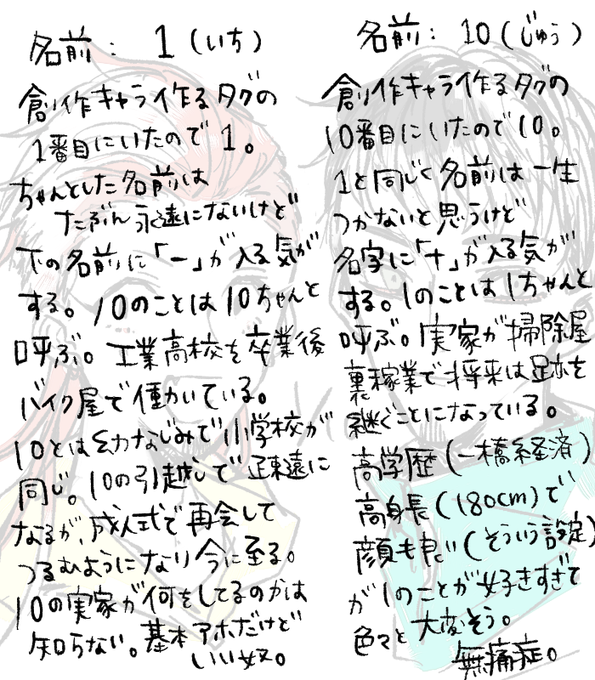 名前: 1(いち)
創作キャラ作るタグの
1番目にいたので1。
ちゃんとした名前は
たぶん永遠にないけど
下の名前に「一」が入る気が
する。10のことは10ちゃんと
呼ぶ。工業高校を卒業後
バイク屋で働いている。
10とは幼なじみで小学校が
同じ。10の引越しで疎遠に
なるが、成人式で再会して
つるむようになり今に至る。
10の実家が何をしてるのかは
知らない。基本アホだけど
いい奴。
名前: 10(じゅう)
創作キャラ作るタグの
10番目にいたので10。
1と同じく名前は一生
つかないと思うけど
名字に「十」が入る気が
する。1のことは1ちゃんと
呼ぶ。実家が掃除屋
裏稼業で将来は跡を
継ぐことになっている。
高学歴(一橋経済)
高身長(180cm)で
顔も良い(そういう設定)
が1のことが好きすぎて
色々と大変そう。
無痛症。